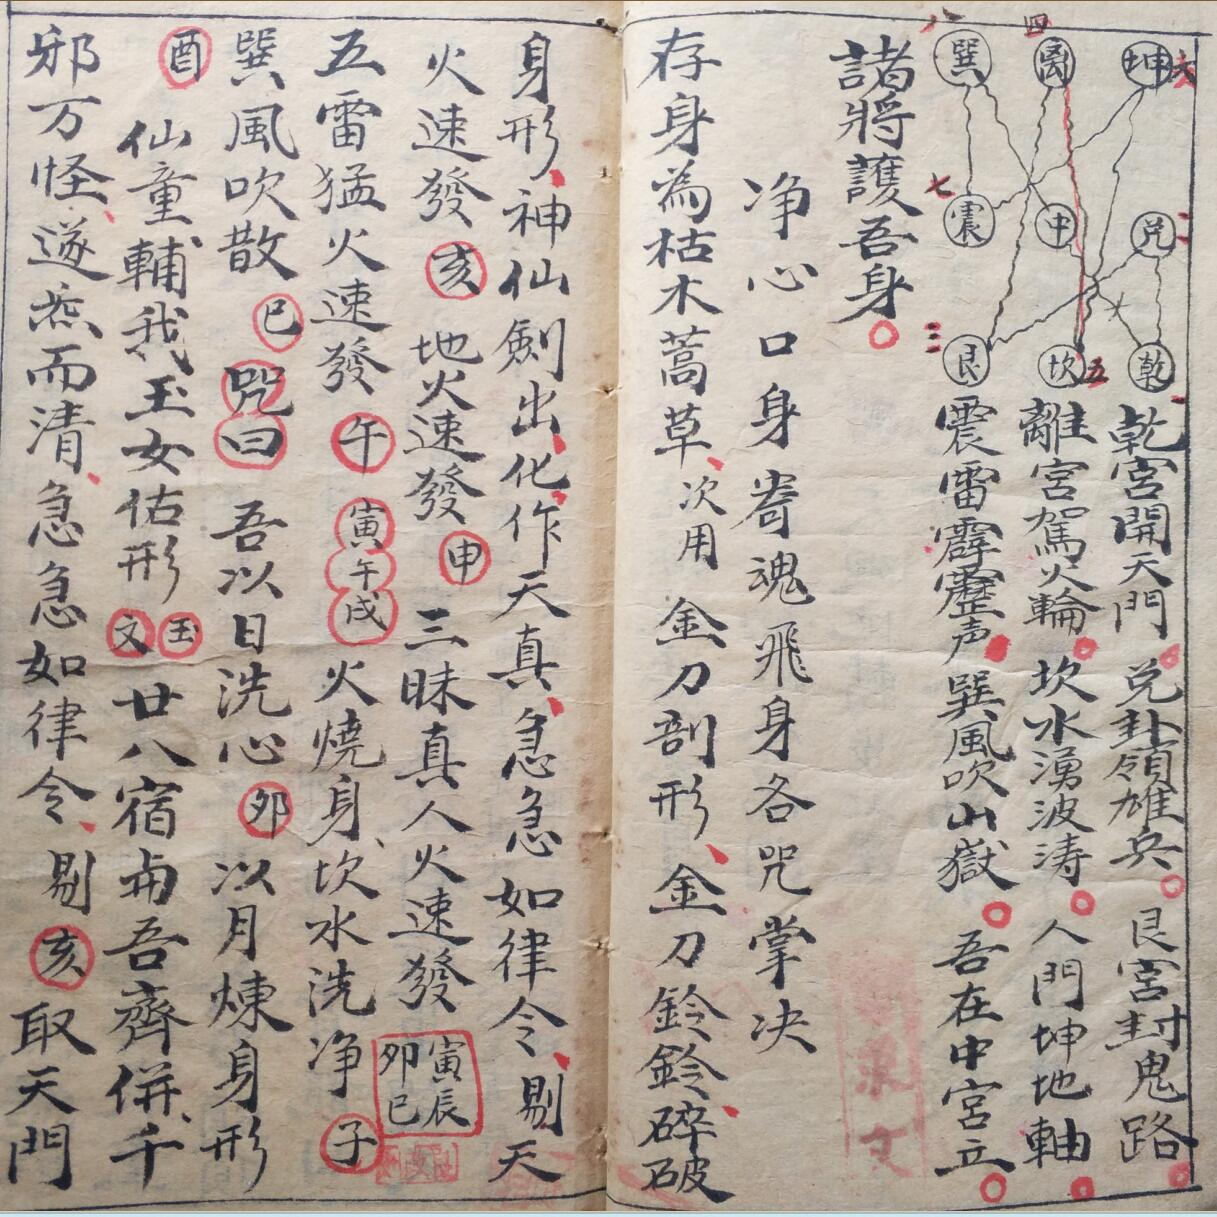 巽 離 坤
震 中 兌
艮 坎 乾
八 四 六
七 二
三 五 一
乾宮開天門 兌卦領雄兵 艮宮封鬼路
離宮駕火輪 坎水湧波涛 人門坤地軸
震雷霹靂声 巽風吹山嶽 吾在中宮立
諸將護吾身
净心口身 寄魂飛身各咒掌决
存身為枯木蒿草 次用 金刀剖形 金刀鈴鈴碎破
身形 神仙劍出 化作天真 急急如律令 剔天
火速發 亥 地火速發 申 三昧真人火速發 寅辰卯巳
五雷猛火速發 午 寅午戌 火燒身 坎水洗净 子
巽風吹散 巳 咒曰 吾以日洗心 卯 以月煉身形
酉 仙童輔我 玉女佑形 玉文 廿八宿与吾齊併 千
邪万怪 遂炁而清 急急如律令 剔 亥 取天門